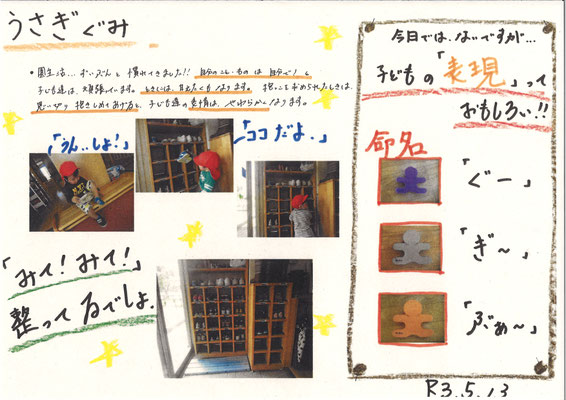 うさぎぐみ
・園生活…ずいぶんと慣れてきました!! 自分のこと・ものは自分で!と
子ども達は、大張りきっています。ときには、甘えたくもなります。抱っこを求められたときは、
思い切り抱きしめてあげると、子ども達の表情は、やわらかくなります。
「うん‥しょ!」
「ココだよ.」
「みて!みて!」
整ってるでしょ.
今日では、ないですが…
子どもの「表現」って
おもしろい!!
命名
「ぐー」
「ぎ〜」
「ぶぁ〜」
R3.5.13